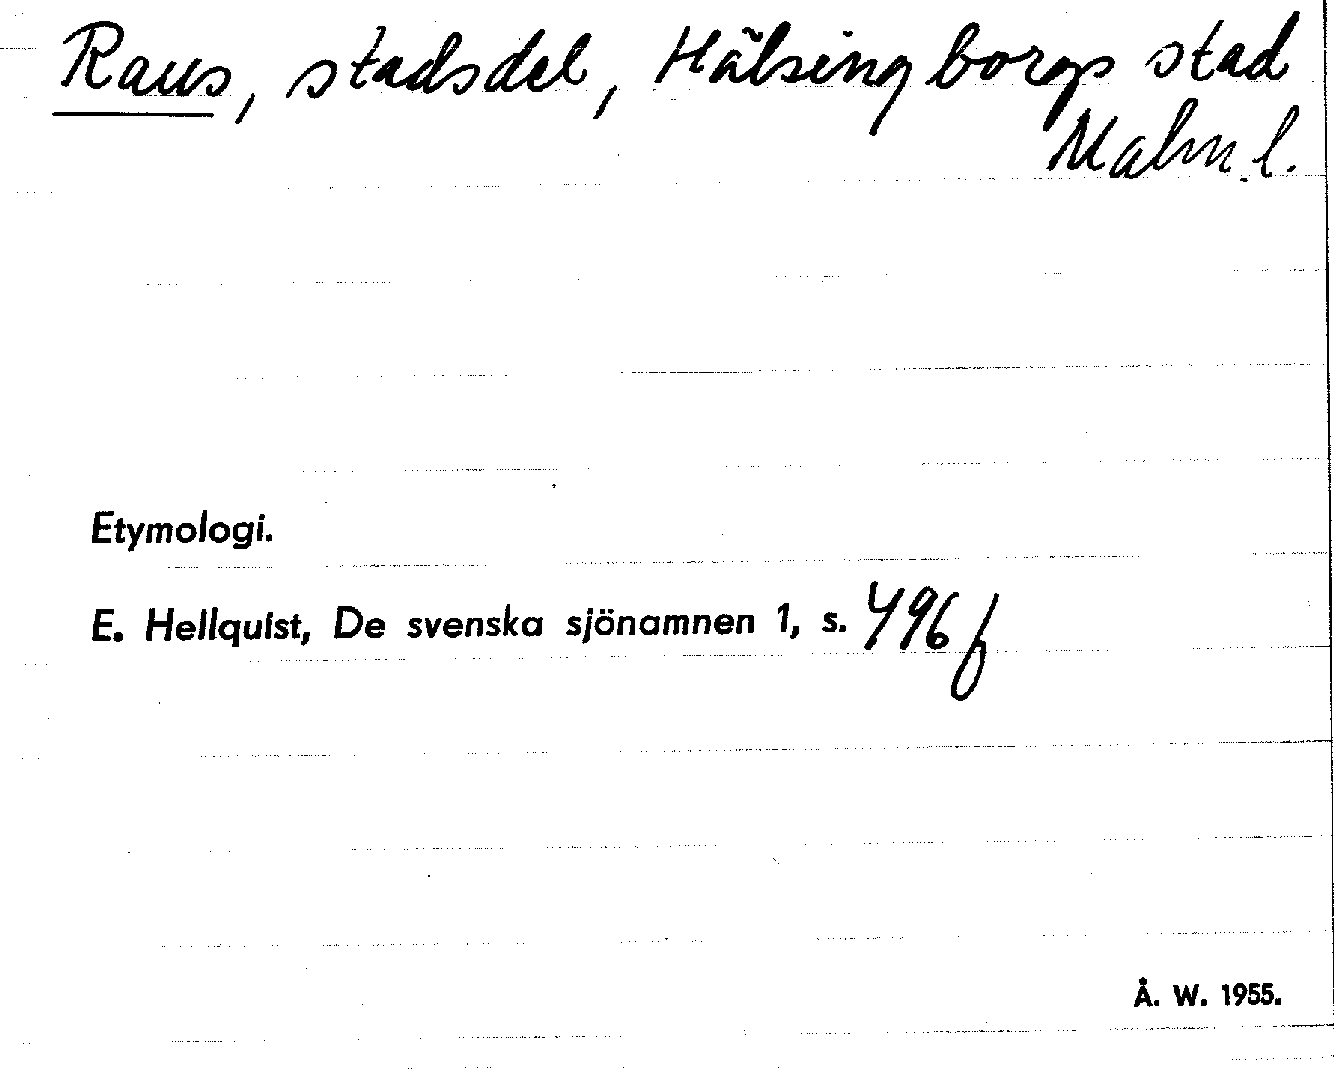 Raus, stadsdel, Hälsingborgs stad
Malm.l.
Etymologi.
E. Hellquist, De svenska sjönamnen 1, s. 496 f
Å. W. 1955.